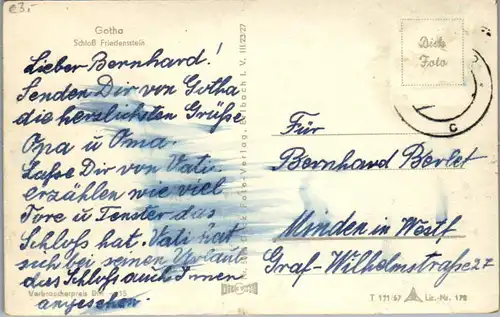 e3,-
Gotha
Schloß Friedenstein
Lieber Bernhard!
Senden Dir von Gotha
die herzlichsten Grüße
Opa u Oma.
Lasse Dir von Vati
erzählen wie viel
Tore u Fenster das
Schloß hat. Vati hat
sich bei seinen Urlaub
das Schloß auch Imer
angesehen.
Verbraucherpreis DM -,15
Foto-Verlag, Erlbach i. V. III/23/27
Dick
Foto
c
Für
Bernhard Berlet
Minden in Westf
Graf-Wilhelmstraße 27
T 171/57
Liz.-Nr. 178